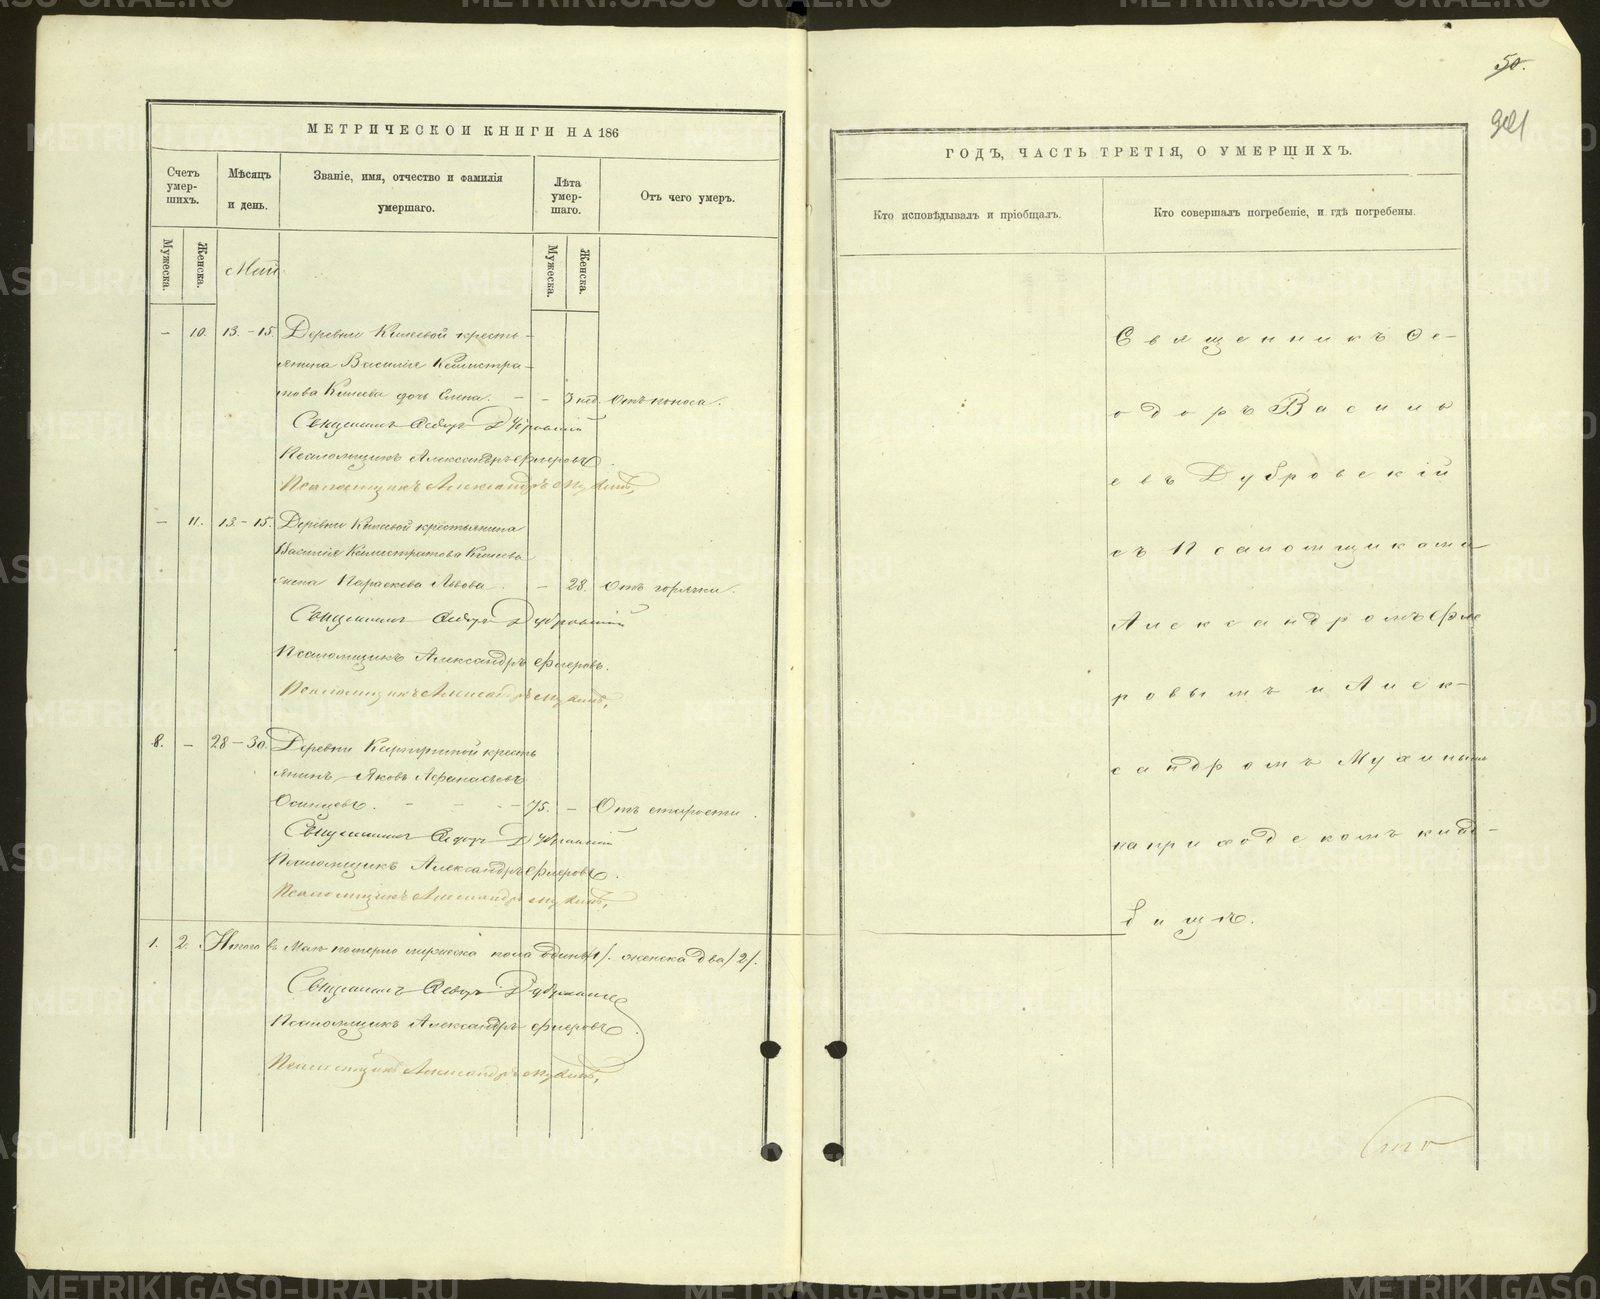 50.
МЕТРИЧЕСКОЙ КНИГИ НА 186
ГОДЪ, ЧАСТЬ ТРЕТІЯ, О УМЕРШИХЪ.
Счетъ умер-шихъ.
Мѣсяцъ и день.
Званіе, имя, отчество и фамилія умершаго.
Лѣта умер-шаго.
Отъ чего умеръ.
Кто исповѣдывалъ и пріобщалъ.
Кто совершалъ погребеніе, и гдѣ погребены.
Мужеска.
Женска.
Май
Мужеска.
Женска.
– 10. 13.–15. Деревни крестья-
янина Василія
дочь Елена. – – 3 нед. Отъ поноса.
Священникъ Ѳедоръ Дубровскій
Псаломщикъ Александръ Флеровъ.
Псаломщикъ Александръ Мухинъ,
– 11. 13.–15. Деревни крестьянина
Василія
жена Параскева Львова. – 28. Отъ горячки.
Священникъ Ѳедоръ Дубровскій
Псаломщикъ Александръ Флеровъ.
Псаломщикъ Александръ Мухинъ,
8. – 28–30. Деревни кресть
янинъ Яковъ Афанасьевъ
Осинцевъ. – – – 75. – Отъ старости.
Священникъ Ѳедоръ Дубровскій
Псаломщикъ Александръ Флеровъ.
Псаломщикъ Александръ Мухинъ,
1. 2. Итого въ Маѣ померло мужеска пола одинъ /1/. женска два /2/.
Священникъ Ѳедоръ Дубровскій
Псаломщикъ Александръ Флеровъ.
Псаломщикъ Александръ Мухинъ,
Священникъ Ѳе-
одоръ Василь
евъ Дубровскій
съ Псаломщиками
Александромъ Фле
ровымъ и Алек-
сандромъ Мухинымъ
на приходскомъ клад-
бищѣ.
METRIKI.GASO-URAL.RU